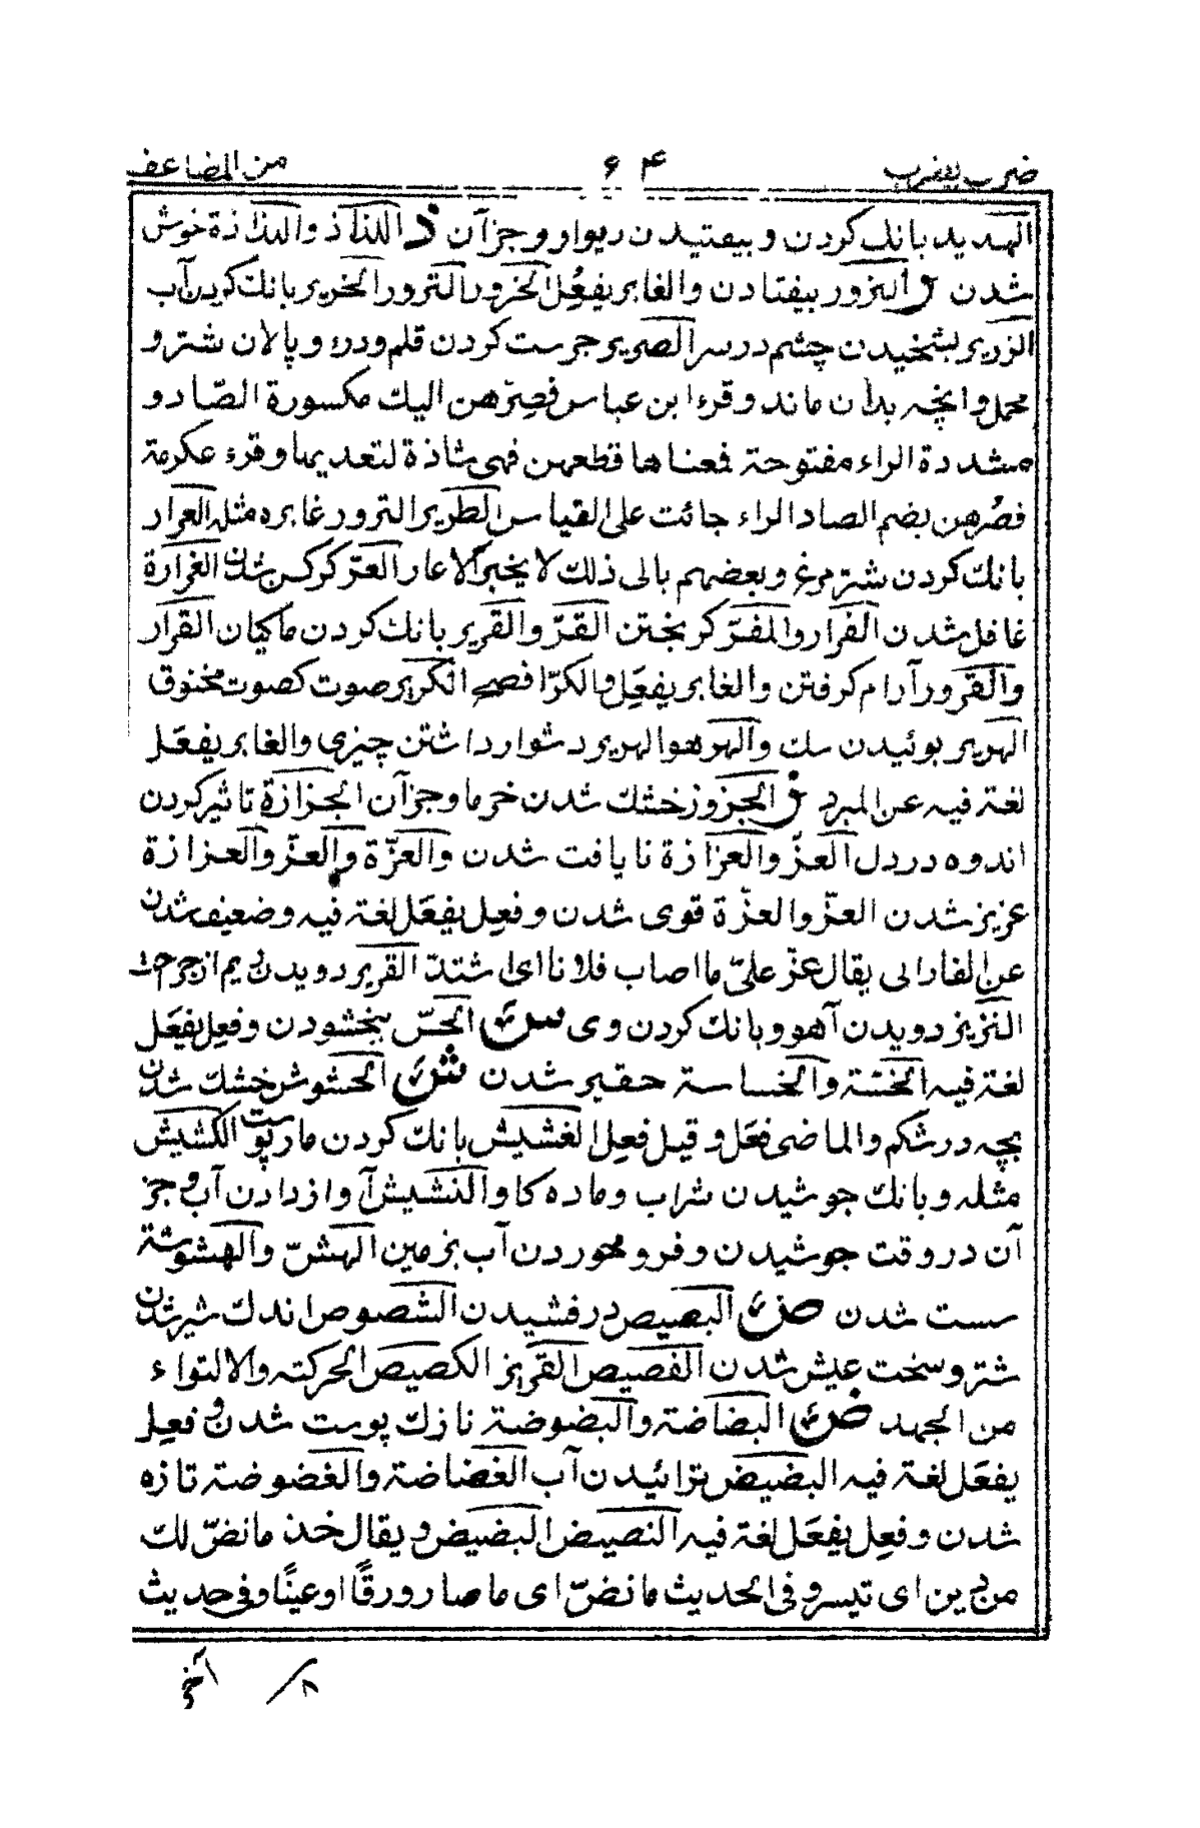 ضرب يضرب ۶۴ من المضاعف
الهديد بانك كردن و بيفتيدن ديوار و جزآن ذ اللذاذ واللذاذة خوش
شدن ر الترور بيفتادن والغابر يفعُل الخرور الترور الخرير بانك كردن آب
الزرير بشخيدن چشم در سر الصرير جرست كردن قلم و در و پالان شتر و
محمل و انچه بدان ماند وقرءا بن عباس فصِرّهن اليك مكسورة الصّاد و
مشددة الراء مفتوحة فمعناها قطعهن فهى شاذة لتعديها وقرء عكرمة
فصُرهن بضم الصاد الراء جائت على القياس الطرير الترور غابره مثله العرار
بانك كردن شتر مرغ و بعضهم بالى ذلك لا يخبر الا عار العرّ كركن شدن الغرارة
غافل شدن الفرار والمفرّ كريختن القرّ والقرير بانك كردن ماكيان القرار
والقرور آرام كرفتن والغابر يفعَل والكرّ افصح الكرير صوت كصوت مخنوق
الهرير نوئيدن سك والهر هو الهرير دشوار داشتن چيزى والغابر يفعَل
لغة فيه عن المبرد ز الجزوز خشك شدن خرما و جزآن الجزازة تاثير كردن
اندوه در دل العزّ والعزازة نايافت شدن والعزّة والعزّ والعزازة
عزيز شدن العزّ والعزّة قوى شدن و فعِل يفعَل لغة فيه و ضعيف شدن
عن الفارابى يقال عزّ علىّ ما اصاب فلانا اى اشتدّ القزيز دويدن
النزيز دويدن آهو و بانك كردن وى س الحسّ ببخشودن و فعِل يفعَل
لغة فيه الخسّة والخساسة حقير شدن ش الحشوش خشك شدن
بچه در شكم والماضى فعَل و قيل فعِل الغشيش بانك كردن مار پوست الكشيش
مثله و بانك جوشيدن شراب و ماده كاو النشيش آواز دادن آب و جز
آن در وقت جوشيدن و فرو خوردن آب بزمين الهشّ والهشوشة
سست شدن ص البصيص درفشيدن الشصوص اندك شير شدن
شتر و سخت عيش شدن الفصيص القريز الكصيص الحركة والالتواء
من الجهد ض البضاضة والبضوضة نازك پوست شدن و فعِل
يفعَل لغة فيه البضيض ترائيدن آب الغضاضة والغضوضة تازه
شدن و فعِل يفعَل لغة فيه النضيض البضيض و يقال خذ ما نضّ لك
من دين اى تيسر و فى الحديث ما نضّ اى ما صار ورقًا او عينًا و فى حديث
۸ آخر